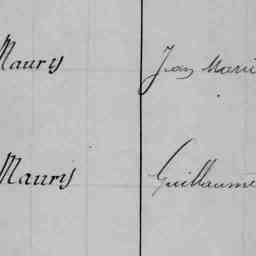 Maury Jean Marie
Maury Guillaume